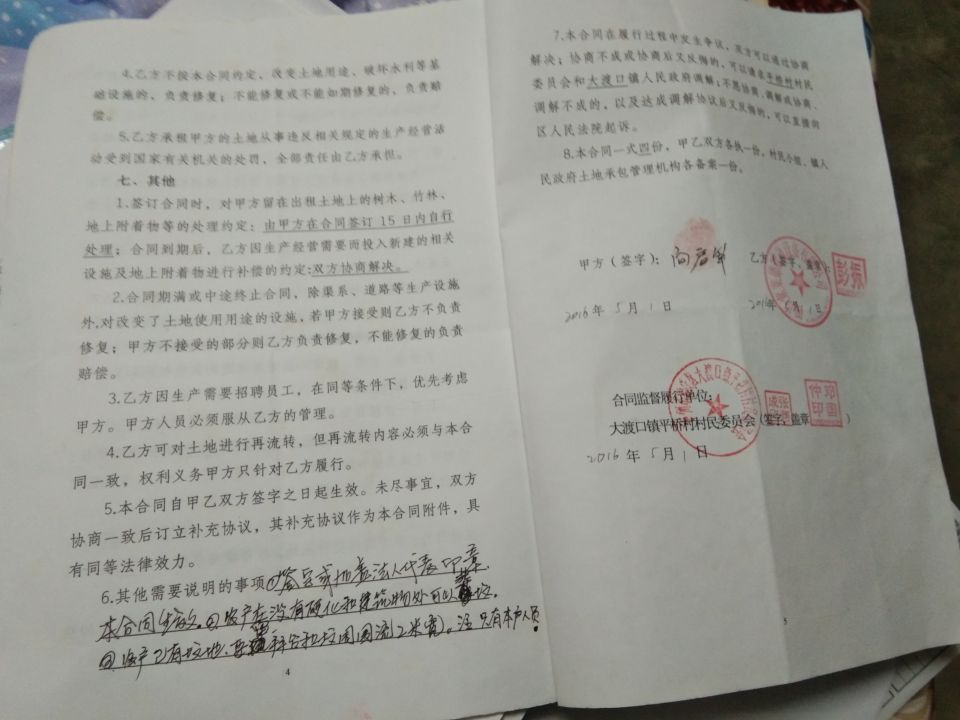 4.乙方不按本合同约定、改变土地用途、破坏水利等基
础设施的、负责修复；不能修复或不能如期修复的、负责赔
偿。
5.乙方承租甲方的土地从事违反相关规定的生产经营活
动受到国家有关机关的处罚，全部责任由乙方承担。
七、其他
1.签订合同时，对甲方留在出租土地上的树木、竹林、
地上附着物等的处理约定：由甲方在合同签订15日内自行
处理；合同到期后，乙方因生产经营需要而投入新建的相关
设施及地上附着物进行补偿的约定:双方协商解决。
2.合同期满或中途终止合同，除渠系、道路等生产设施
外,对改变了土地使用用途的设施，若甲方接受则乙方不负责
修复；甲方不接受的部分则乙方负责修复，不能修复的负责
赔偿。
3.乙方因生产需要招聘员工，在同等条件下，优先考虑
甲方。甲方人员必须服从乙方的管理。
4.乙方可对土地进行再流转，但再流转内容必须与本合
同一致，权利义务甲方只针对乙方履行。
5.本合同自甲乙双方签字之日起生效。未尽事宜，双方
协商一致后订立补充协议，其补充协议作为本合同附件，具
有同等法律效力。
6.其他需要说明的事项①签字或加盖法人代表印章
本合同 ②农户在没有硬化和建筑物处可以
③农户已有坟地、 2米 注 只有本户人员
4
7.本合同在履行过程中发生争议，双方可以通过协商
解决；协商不成或协商后又反悔的，可以请求平桥村村民
委员会和大渡口镇人民政府调解；不愿协商、调解或协商、
调解不成的，以及达成调解协议后又反悔的，可以直接向
区人民法院起诉。
8.本合同一式四份，甲乙双方各执一份，村民小组、镇人
民政府土地承包管理机构各备案一份。
甲方（签字）： 乙方（签字、盖章）：
2016年5月1日 2016年5月1日
合同监督履行单位：
大渡口镇平桥村村民委员会（签字、盖章）
2016年5月1日
5